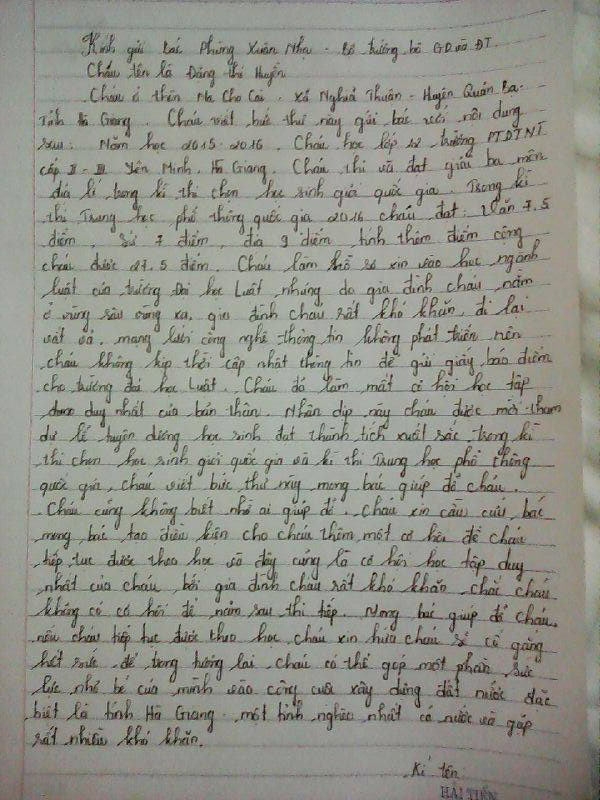 Kính gửi bác Phùng Xuân Nhạ - Bộ trưởng bộ GD và ĐT.
Cháu tên là Đặng Thị Huyền
Cháu ở thôn Na Cho Cai - Xã Nghĩa Thuận - Huyện Quản Bạ -
Tỉnh Hà Giang. Cháu viết bức thư này gửi bác với nội dung
sau: Năm học 2015-2016. Cháu học lớp 12 trường PTDTNT
cấp II - III Yên Minh, Hà Giang. Cháu thi và đạt giải ba môn
địa lí trong kì thi chọn học sinh giỏi quốc gia. Trong kì
thi Trung học phổ thông quốc gia 2016 cháu đạt: Văn 7,5
điểm, sử 7 điểm, địa 9 điểm, tính thêm điểm cộng
cháu được 27,5 điểm. Cháu làm hồ sơ xin vào học ngành
luật của trường Đại học Luật, nhưng do gia đình cháu nằm
ở vùng sâu vùng xa, gia đình cháu rất khó khăn, đi lại
vất vả, mạng lưới công nghệ thông tin không phát triển nên
cháu không kịp thời cập nhật thông tin để gửi giấy báo điểm
cho trường đại học Luật. Cháu đã làm mất cơ hội học tập
được duy nhất của bản thân. Nhân dịp này cháu được mời tham
dự lễ tuyên dương học sinh đạt thành tích xuất sắc trong kì
thi chọn học sinh giỏi quốc gia và kì thi Trung học phổ thông
quốc gia, cháu viết bức thư này mong bác giúp đỡ cháu.
Cháu cũng không biết nhờ ai giúp đỡ. Cháu xin cầu cứu bác
mong bác tạo điều kiện cho cháu thêm một cơ hội để cháu
tiếp tục được theo học vì đây cũng là cơ hội học tập duy
nhất của cháu, bởi gia đình cháu rất khó khăn, chắc cháu
không có cơ hội để năm sau thi tiếp. Mong bác giúp đỡ cháu,
nếu cháu tiếp tục được theo học, cháu xin hứa cháu sẽ cố gắng
hết sức để trong tương lai cháu có thể góp một phần sức
lực nhỏ bé của mình vào công cuộc xây dựng đất nước đặc
biệt là tỉnh Hà Giang - một tỉnh nghèo nhất cả nước và gặp
rất nhiều khó khăn.
Kí tên
HẢI TIẾN